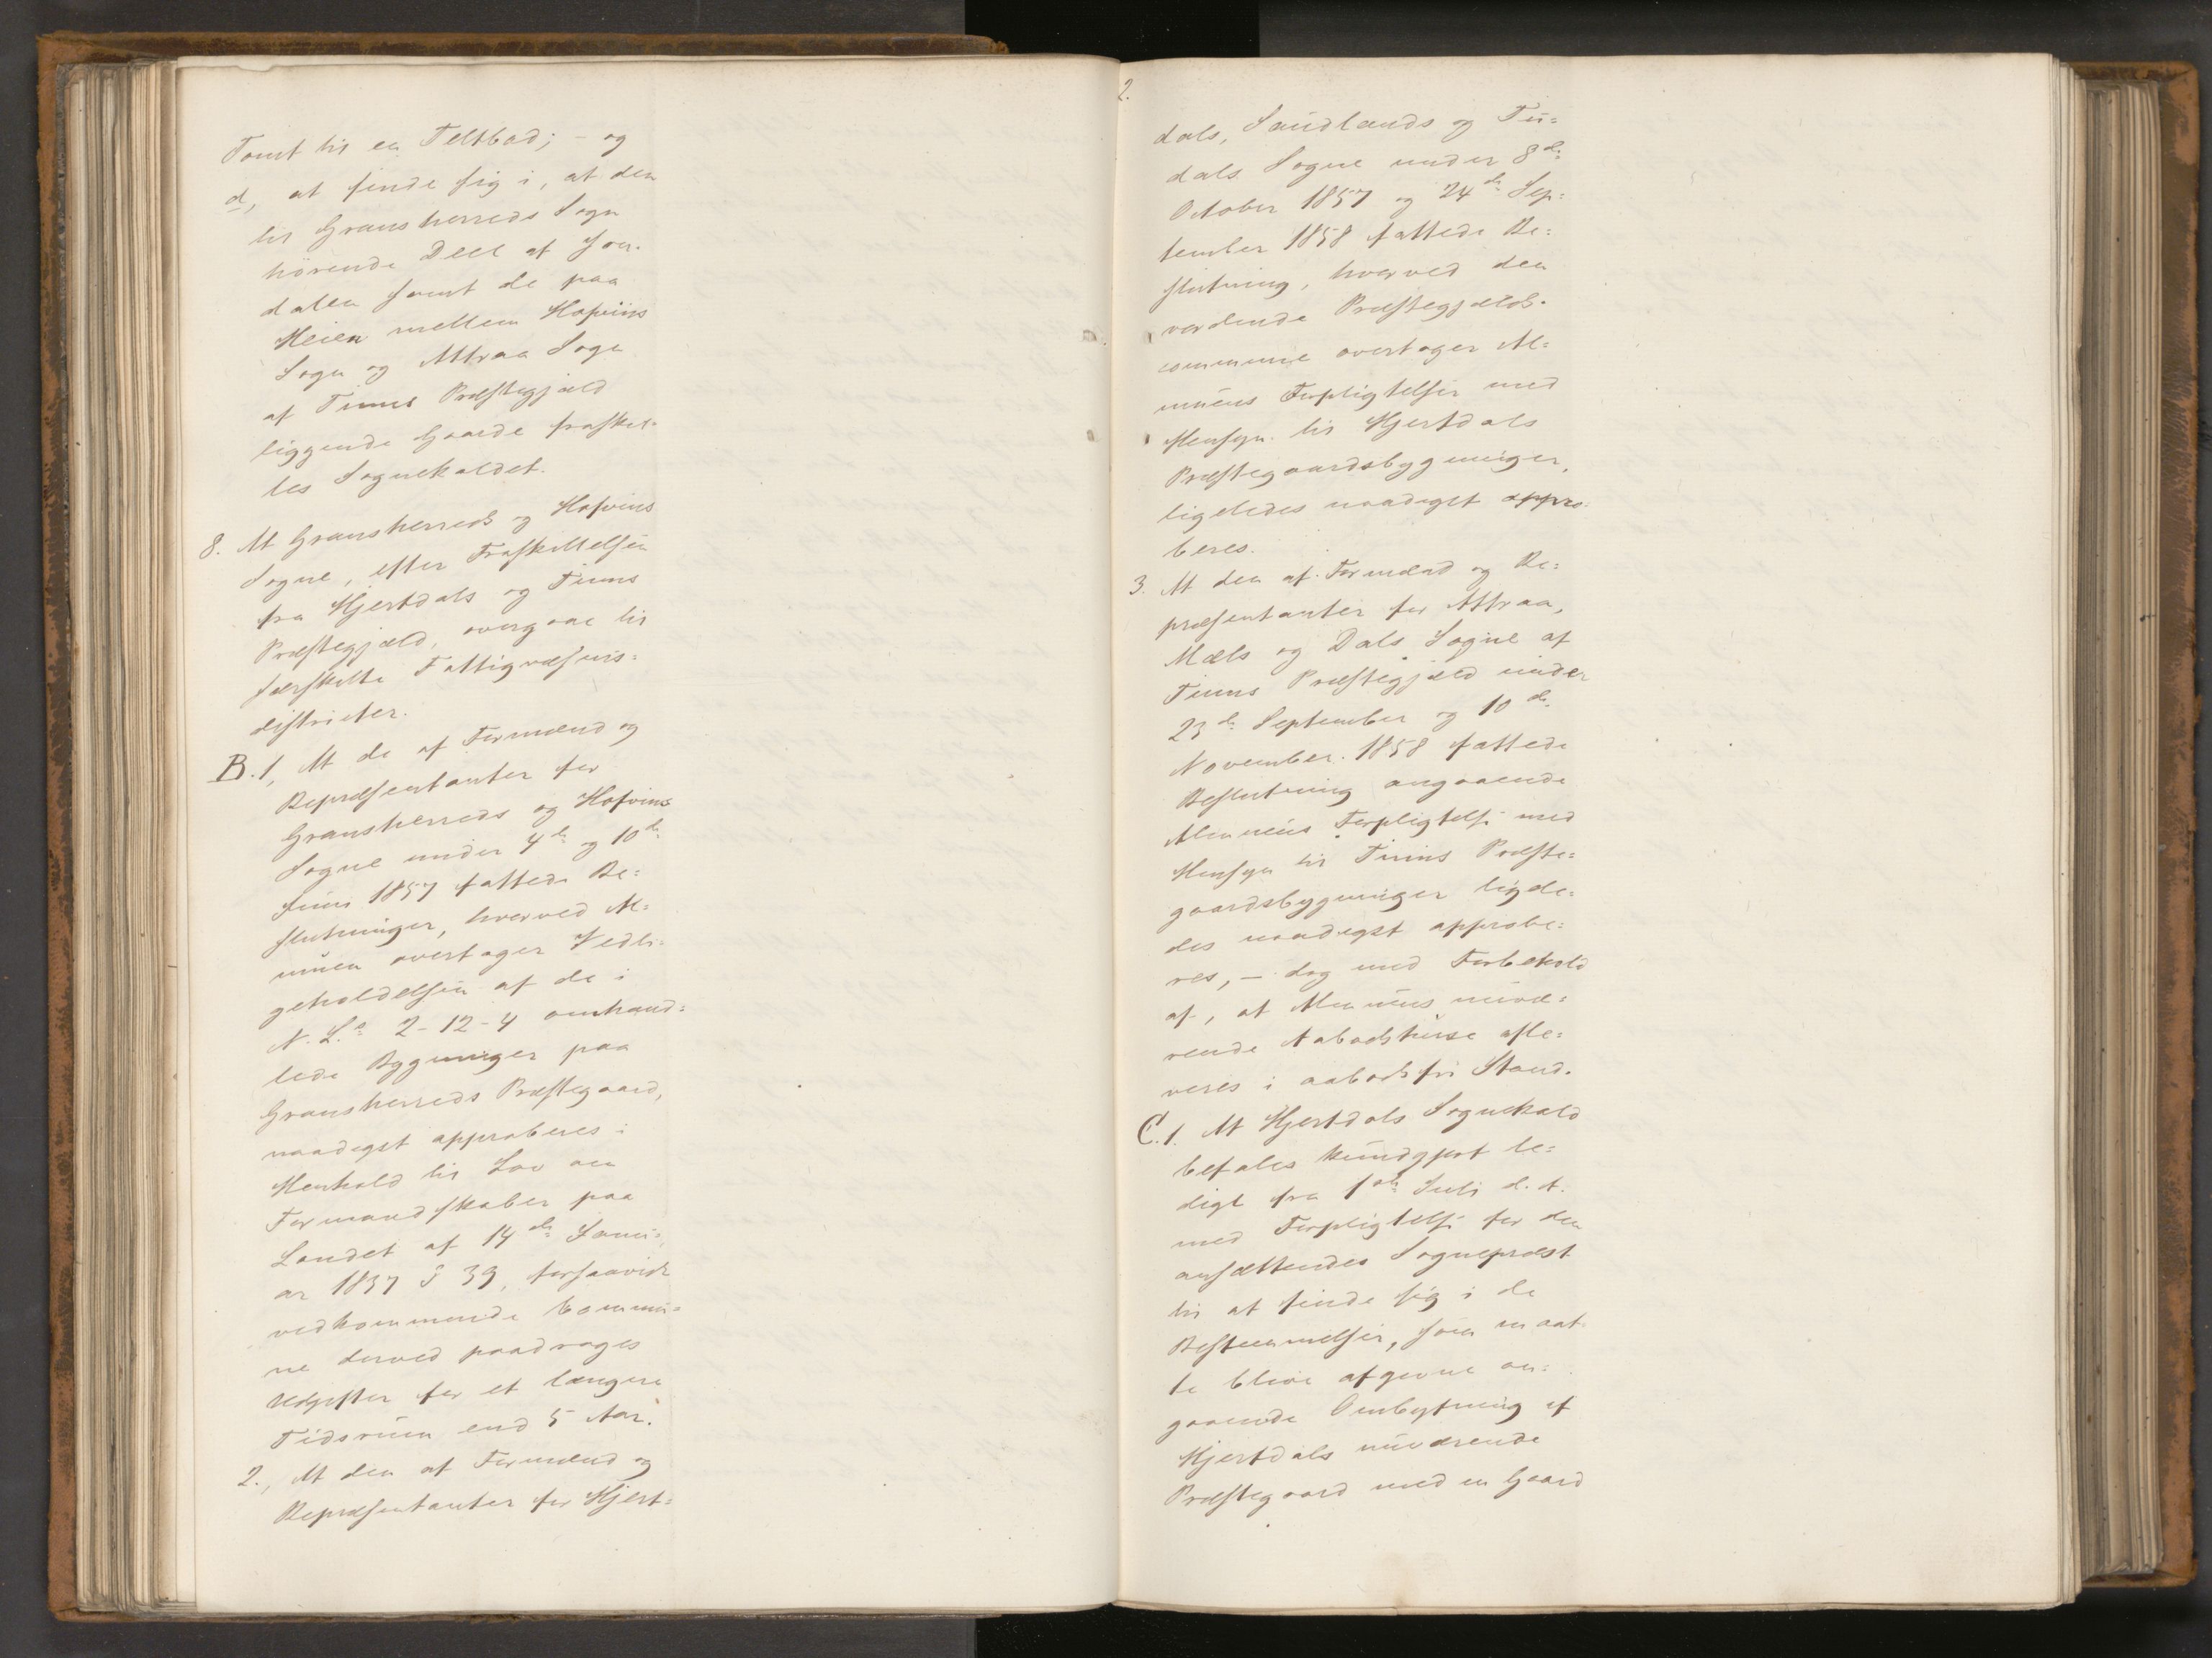 Tomt til en Feltbod; - og
d, at finde sig i, at den
til Gransherreds Sogn
hörende Deel af Jon-
dalen samt de paa
Heien mellem Hofviins
Sogn og Attraa Sogn
af Tinns Præstegjæld
liggende Gaarde fraskil-
les Sognekaldet.
8. At Gransherreds og Hofvins
Sogne, efter Fraskillelsen
fra Hjertdals og Tinns
Præstegjæld, overgaae til
særskilte Fattigvæsens=
districter.
B. 1, At de af Formænd og
Repræsentanter for
Gransherreds og Hofvins
Sogne under 4de og 10de
Juni 1857 fattede Be=
slutninger, hvorved Al=
muen overtager Vedli=
geholdelsen af de i
N. L.s 2-12-4 omhand=
lede Bygninger paa
Gransherreds Præstegaard,
naadigst approberes i
Henhold til Lov om
Formandskaber paa
Landet af 14de Janu=
ar 1837 § 39, forsaavidt
vedkommende Commu=
ne derved paadrages
Udgifter for et længere
Tidsrum end 5 Aar.
2., At den af Formænd og
Repræsentanter for Hjert=
2.
dals, Saudlands og Tu=
dals Sogne under 8de
October 1857 og 24de Sep=
tember 1858 fattede Be=
slutning, hvorved den
vordende Præstegjælds-
commune overtager Al=
muens Forpligtelser med
Hensyn til Hjertdals
Præstegaardsbygninger,
ligeledes naadigst appro=
beres.
3. At den af Formænd og Re=
præsentanter for Attraa,
Mæls og Dals Sogne af
Tinns Præstegjæld under
23de September og 10de
November 1858 fattede
Beslutning angaaende
Almuens Forpligtelse med
Hensyn til Tinns Præste=
gaardsbygninger ligele=
des naadigst approbe=
res, - dog med Forbehold
af, at Almuens nuvæ=
rende Aabodshuse afle=
veres i aabodsfri Stand.
C. 1. At Hjertdals Sognekald
befales kundgjort le=
digt fra 1ste Juli d. A.
med Forpligtelse for den
ansættendes Sognepræst
til at finde sig i de
Bestemmelser, som maat
te blive afgivne an=
gaaende Ombytning af
Hjertdals nuværende
Præstegaard med en Gaard